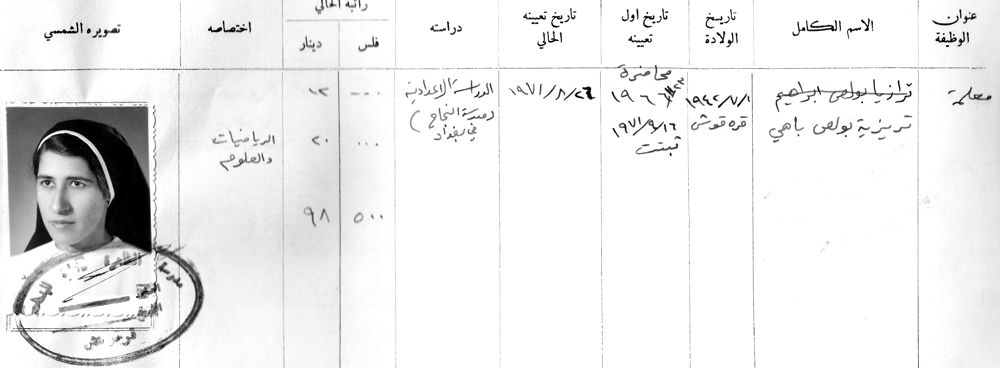 عنوان الوظيفة
الاسم الكامل
تاريخ الولادة
تاريخ اول تعيينه
تاريخ تعيينه الحالي
دراسته
راتبه الحالي
فلس
دينار
اختصاصه
تصويره الشمسي
معلمة
ترازيا بولص ابراهيم
تريزية بولص باهي
١٩٤٢/٧/١
قره قوش
محاضرة
١٩٦٦
١٩٧١/٩/١٦
ثبتت
١٩٧١/٨/٢٦
الدراسة الاعدادية
في بغداد
---
١٢
...
٢٠
٥٠٠
٩٨
الرياضيات
والعلوم
مدرسة